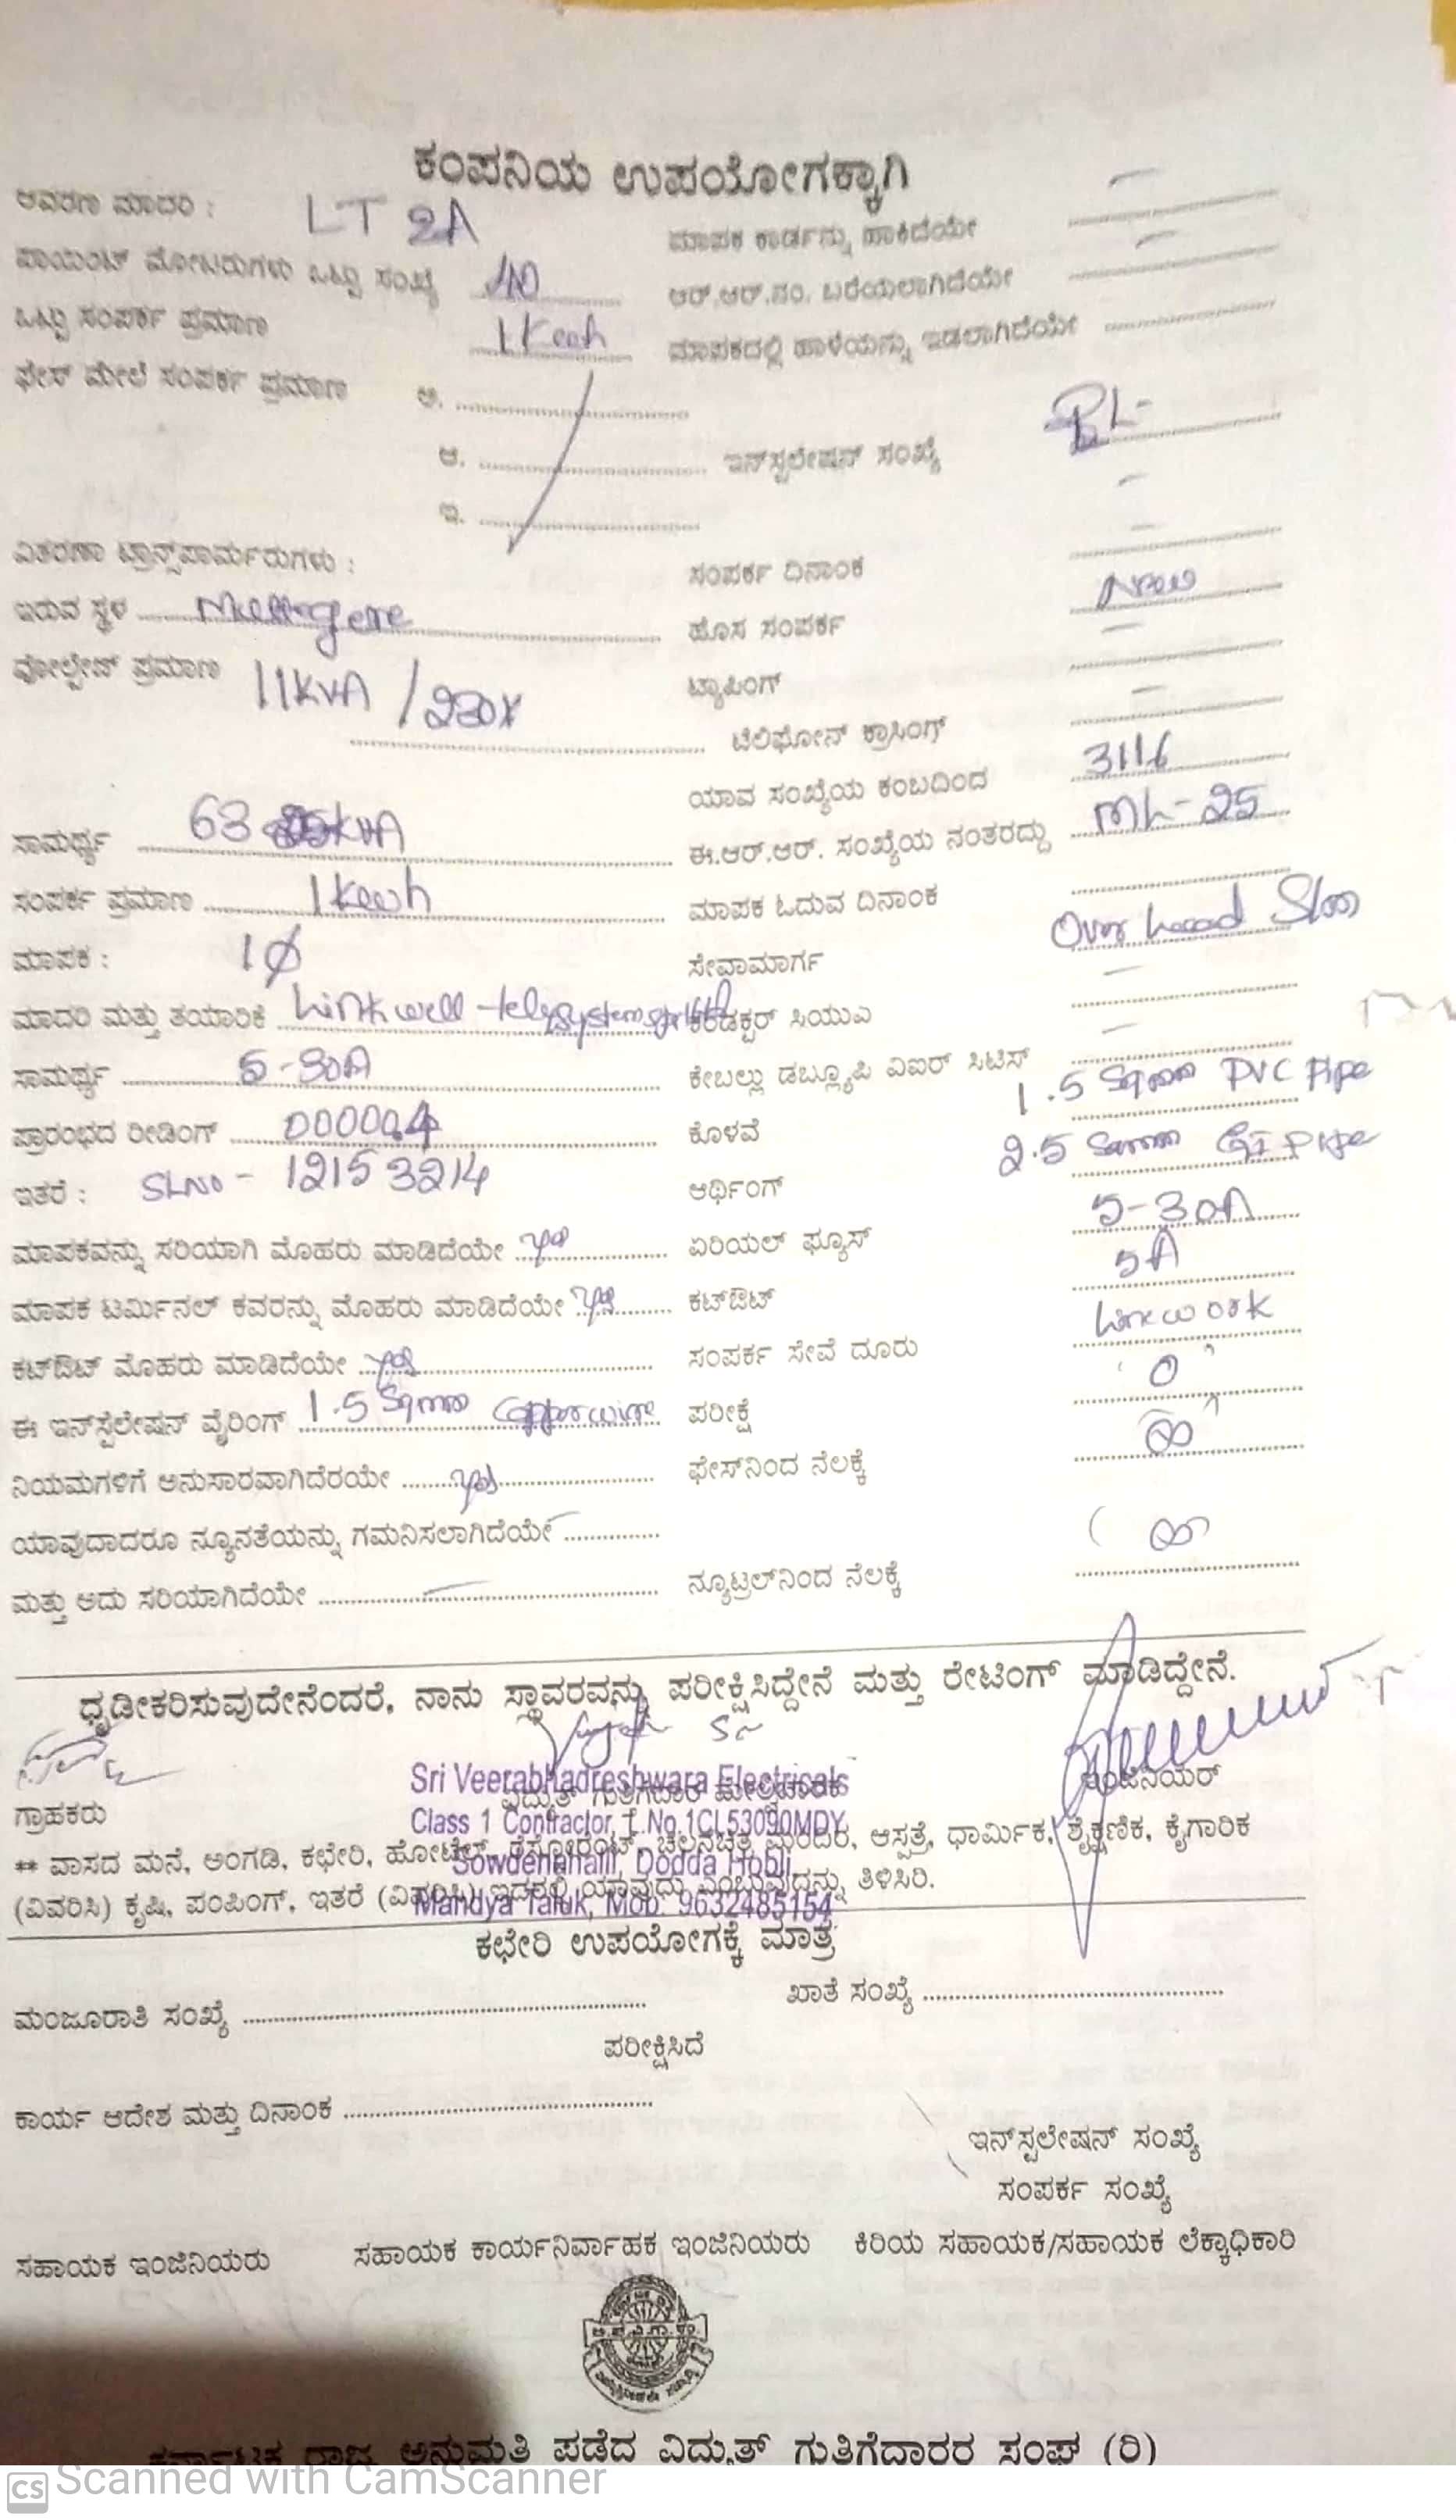 ಕಂಪನಿಯ ಉಪಯೋಗಕ್ಕಾಗಿ
ಆವರಣ ಮಾದರಿ : LT 2A ಮಾಪಕ ಕಾರ್ಡನ್ನು ಹಾಕಿದೆಯೇ —
ಪಾಯಿಂಟ್ ಮೋಟರುಗಳು ಒಟ್ಟು ಸಂಖ್ಯೆ ಆರ್.ಆರ್.ನಂ. ಬರೆಯಲಾಗಿದೆಯೇ —
ಒಟ್ಟು ಸಂಪರ್ಕ ಪ್ರಮಾಣ ಮಾಪಕದಲ್ಲಿ ಹಾಳೆಯನ್ನು ಇಡಲಾಗಿದೆಯೇ
ಫೇಸ್ ಮೇಲೆ ಸಂಪರ್ಕ ಪ್ರಮಾಣ ಅ.
ಆ. ಇನ್‌ಸ್ಟಲೇಷನ್ ಸಂಖ್ಯೆ
ಇ.
ವಿತರಣಾ ಟ್ರಾನ್ಸ್‌ಪಾರ್ಮರುಗಳು : ಸಂಪರ್ಕ ದಿನಾಂಕ —
ಇರುವ ಸ್ಥಳ ಹೊಸ ಸಂಪರ್ಕ New
ವೋಲ್ಟೇಜ್ ಪ್ರಮಾಣ 11KVA / 230V ಟ್ಯಾಪಿಂಗ್ —
ಟೆಲಿಫೋನ್ ಕ್ರಾಸಿಂಗ್ —
ಯಾವ ಸಂಖ್ಯೆಯ ಕಂಬದಿಂದ 3116
ಸಾಮರ್ಥ್ಯ 63 KVA ಈ.ಆರ್.ಆರ್. ಸಂಖ್ಯೆಯ ನಂತರದ್ದು ML-25
ಸಂಪರ್ಕ ಪ್ರಮಾಣ ಮಾಪಕ ಓದುವ ದಿನಾಂಕ
ಮಾಪಕ : 1Ø ಸೇವಾಮಾರ್ಗ Over head
ಮಾದರಿ ಮತ್ತು ತಯಾರಿಕೆ Linkwell telesystems ಕಂಡಕ್ಟರ್ ಸಿಯುಎ —
ಸಾಮರ್ಥ್ಯ 5-30A ಕೇಬಲ್ಲು ಡಬ್ಲ್ಯೂಪಿ ವಿಐರ್ ಸಿಟಿಸ್ —
ಪ್ರಾರಂಭದ ರೀಡಿಂಗ್ 00000.4 ಕೊಳವೆ 1.5 Sqmm PVC Pipe
ಇತರೆ : SLNO - 12153214 ಆರ್ಥಿಂಗ್ 2.5 Sqmm GI Pipe
ಮಾಪಕವನ್ನು ಸರಿಯಾಗಿ ಮೊಹರು ಮಾಡಿದೆಯೇ yes ಏರಿಯಲ್ ಫ್ಯೂಸ್ 5-30A
ಮಾಪಕ ಟರ್ಮಿನಲ್ ಕವರನ್ನು ಮೊಹರು ಮಾಡಿದೆಯೇ yes ಕಟ್‌ಔಟ್ 5A
ಕಟ್‌ಔಟ್ ಮೊಹರು ಮಾಡಿದೆಯೇ yes ಸಂಪರ್ಕ ಸೇವೆ ದೂರು Linework
ಈ ಇನ್‌ಸ್ಟೆಲೇಷನ್ ವೈರಿಂಗ್ 1.5 Sqmm Copper wire ಪರೀಕ್ಷೆ '0'
ನಿಯಮಗಳಿಗೆ ಅನುಸಾರವಾಗಿದೆರಯೇ yes ಫೇಸ್‌ನಿಂದ ನೆಲಕ್ಕೆ ∞
ಯಾವುದಾದರೂ ನ್ಯೂನತೆಯನ್ನು ಗಮನಿಸಲಾಗಿದೆಯೇ —
ಮತ್ತು ಅದು ಸರಿಯಾಗಿದೆಯೇ — ನ್ಯೂಟ್ರಲ್‌ನಿಂದ ನೆಲಕ್ಕೆ ∞
ಧೃಡೀಕರಿಸುವುದೇನೆಂದರೆ, ನಾನು ಸ್ಥಾವರವನ್ನು ಪರೀಕ್ಷಿಸಿದ್ದೇನೆ ಮತ್ತು ರೇಟಿಂಗ್ ಮಾಡಿದ್ದೇನೆ.
Sri Veerabhadreshwara Electricals
ಗ್ರಾಹಕರು ವಿದ್ಯುತ್ ಗುತಿಗೆದಾರ ಮೇಲ್ವಿಚಾರಕ ಇಂಜಿನಿಯರ್
Class 1 Contractor, L.No.1CL53090MDY
** ವಾಸದ ಮನೆ, ಅಂಗಡಿ, ಕಛೇರಿ, ಹೋಟೆಲ್, ರೆಸ್ಟೋರೆಂಟ್, ಚಲನಚಿತ್ರ ಮಂದಿರ, ಆಸ್ಪತ್ರೆ, ಧಾರ್ಮಿಕ, ಶೈಕ್ಷಣಿಕ, ಕೈಗಾರಿಕ
Sowdenahalli, Dodda Hobli
(ವಿವರಿಸಿ) ಕೃಷಿ, ಪಂಪಿಂಗ್, ಇತರೆ (ವಿವರಿಸಿ) ಇದರಲ್ಲಿ ಯಾವುದು ಎಂಬುವುದನ್ನು ತಿಳಿಸಿರಿ.
Mandya Taluk, Mob: 9632485154
ಕಛೇರಿ ಉಪಯೋಗಕ್ಕೆ ಮಾತ್ರ
ಮಂಜೂರಾತಿ ಸಂಖ್ಯೆ ಖಾತೆ ಸಂಖ್ಯೆ
ಪರೀಕ್ಷಿಸಿದೆ
ಕಾರ್ಯ ಆದೇಶ ಮತ್ತು ದಿನಾಂಕ
ಇನ್‌ಸ್ಟಲೇಷನ್ ಸಂಖ್ಯೆ
ಸಂಪರ್ಕ ಸಂಖ್ಯೆ
ಸಹಾಯಕ ಇಂಜಿನಿಯರು ಸಹಾಯಕ ಕಾರ್ಯನಿರ್ವಾಹಕ ಇಂಜಿನಿಯರು ಕಿರಿಯ ಸಹಾಯಕ/ಸಹಾಯಕ ಲೆಕ್ಕಾಧಿಕಾರಿ
ಕರ್ನಾಟಕ ರಾಜ್ಯ ಅನುಮತಿ ಪಡೆದ ವಿದ್ಯುತ್ ಗುತಿಗೆದಾರರ ಸಂಘ (ರಿ)
CS Scanned with CamScanner